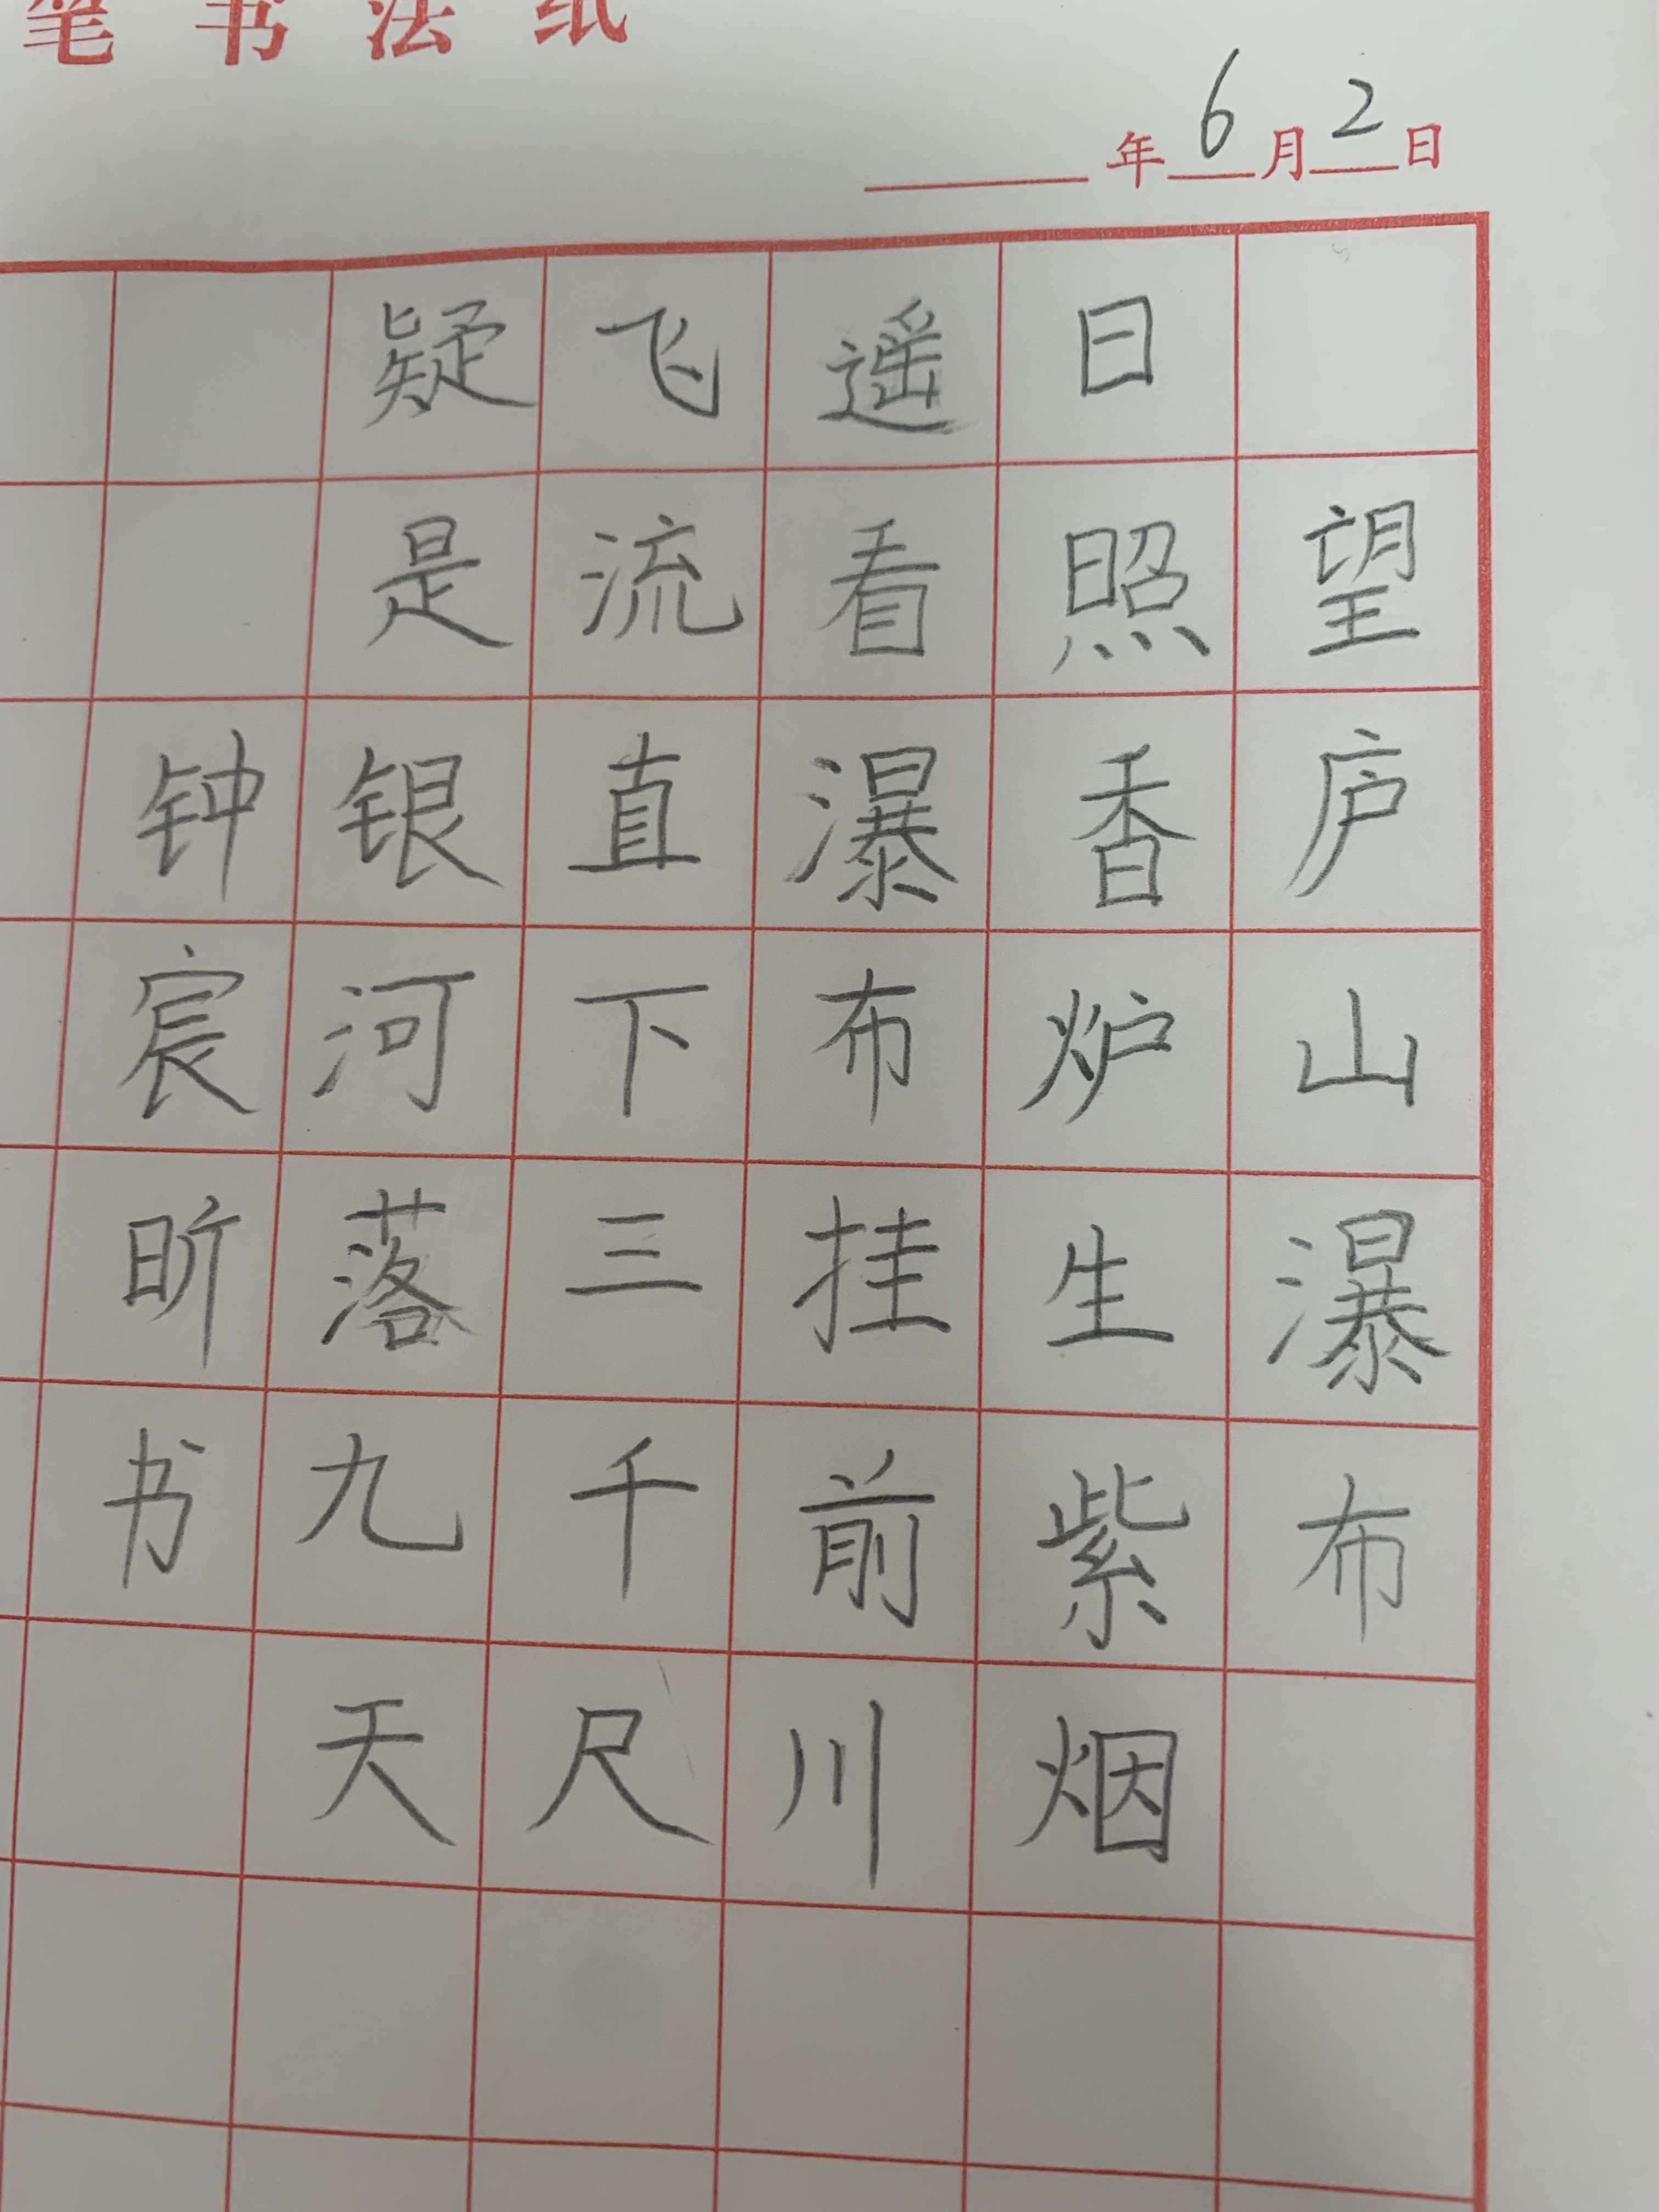 笔书法纸
年6月2日
望庐山瀑布
日照香炉生紫烟
遥看瀑布挂前川
飞流直下三千尺
疑是银河落九天
钟宸昕书